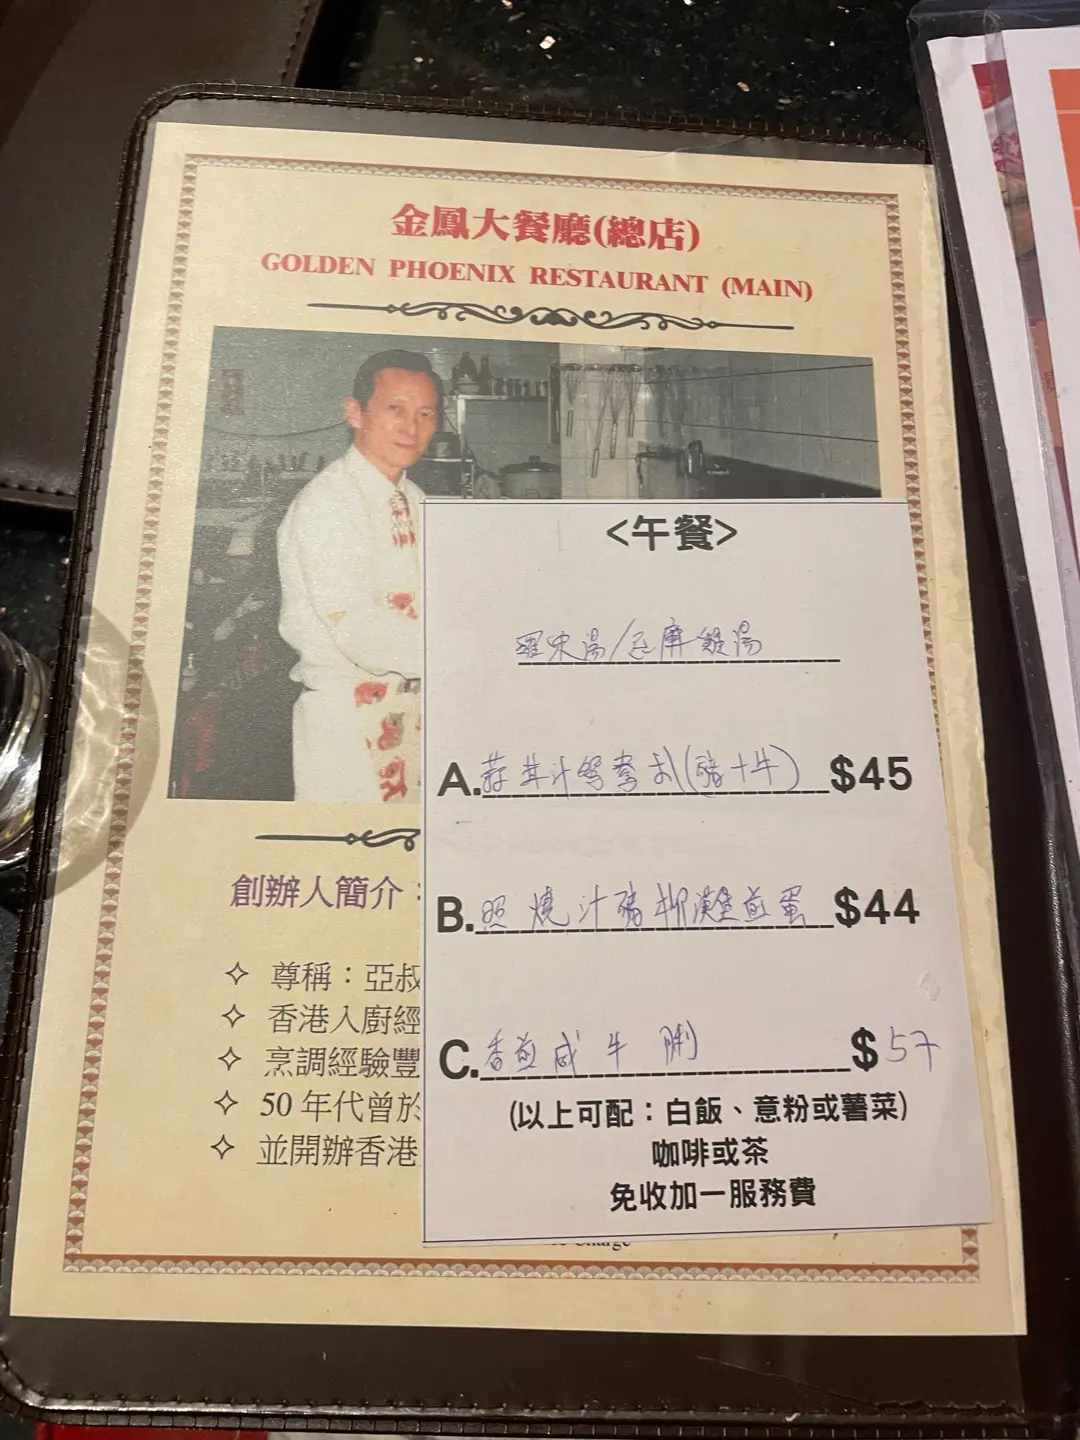 金鳳大餐廳(總店)
GOLDEN PHOENIX RESTAURANT (MAIN)
創辦人簡介：
✧ 尊稱：亞叔
✧ 香港入廚經
✧ 烹調經驗豐
✧ 50 年代曾於
✧ 並開辦香港
<午餐>
羅宋湯/忌廉雞湯
A.蒜茸汁鴛鴦扒(豬+牛) $45
B.照燒汁豬柳漢堡煎蛋 $44
C.香煎咸牛脷 $57
(以上可配：白飯、意粉或薯菜)
咖啡或茶
免收加一服務費
Charge